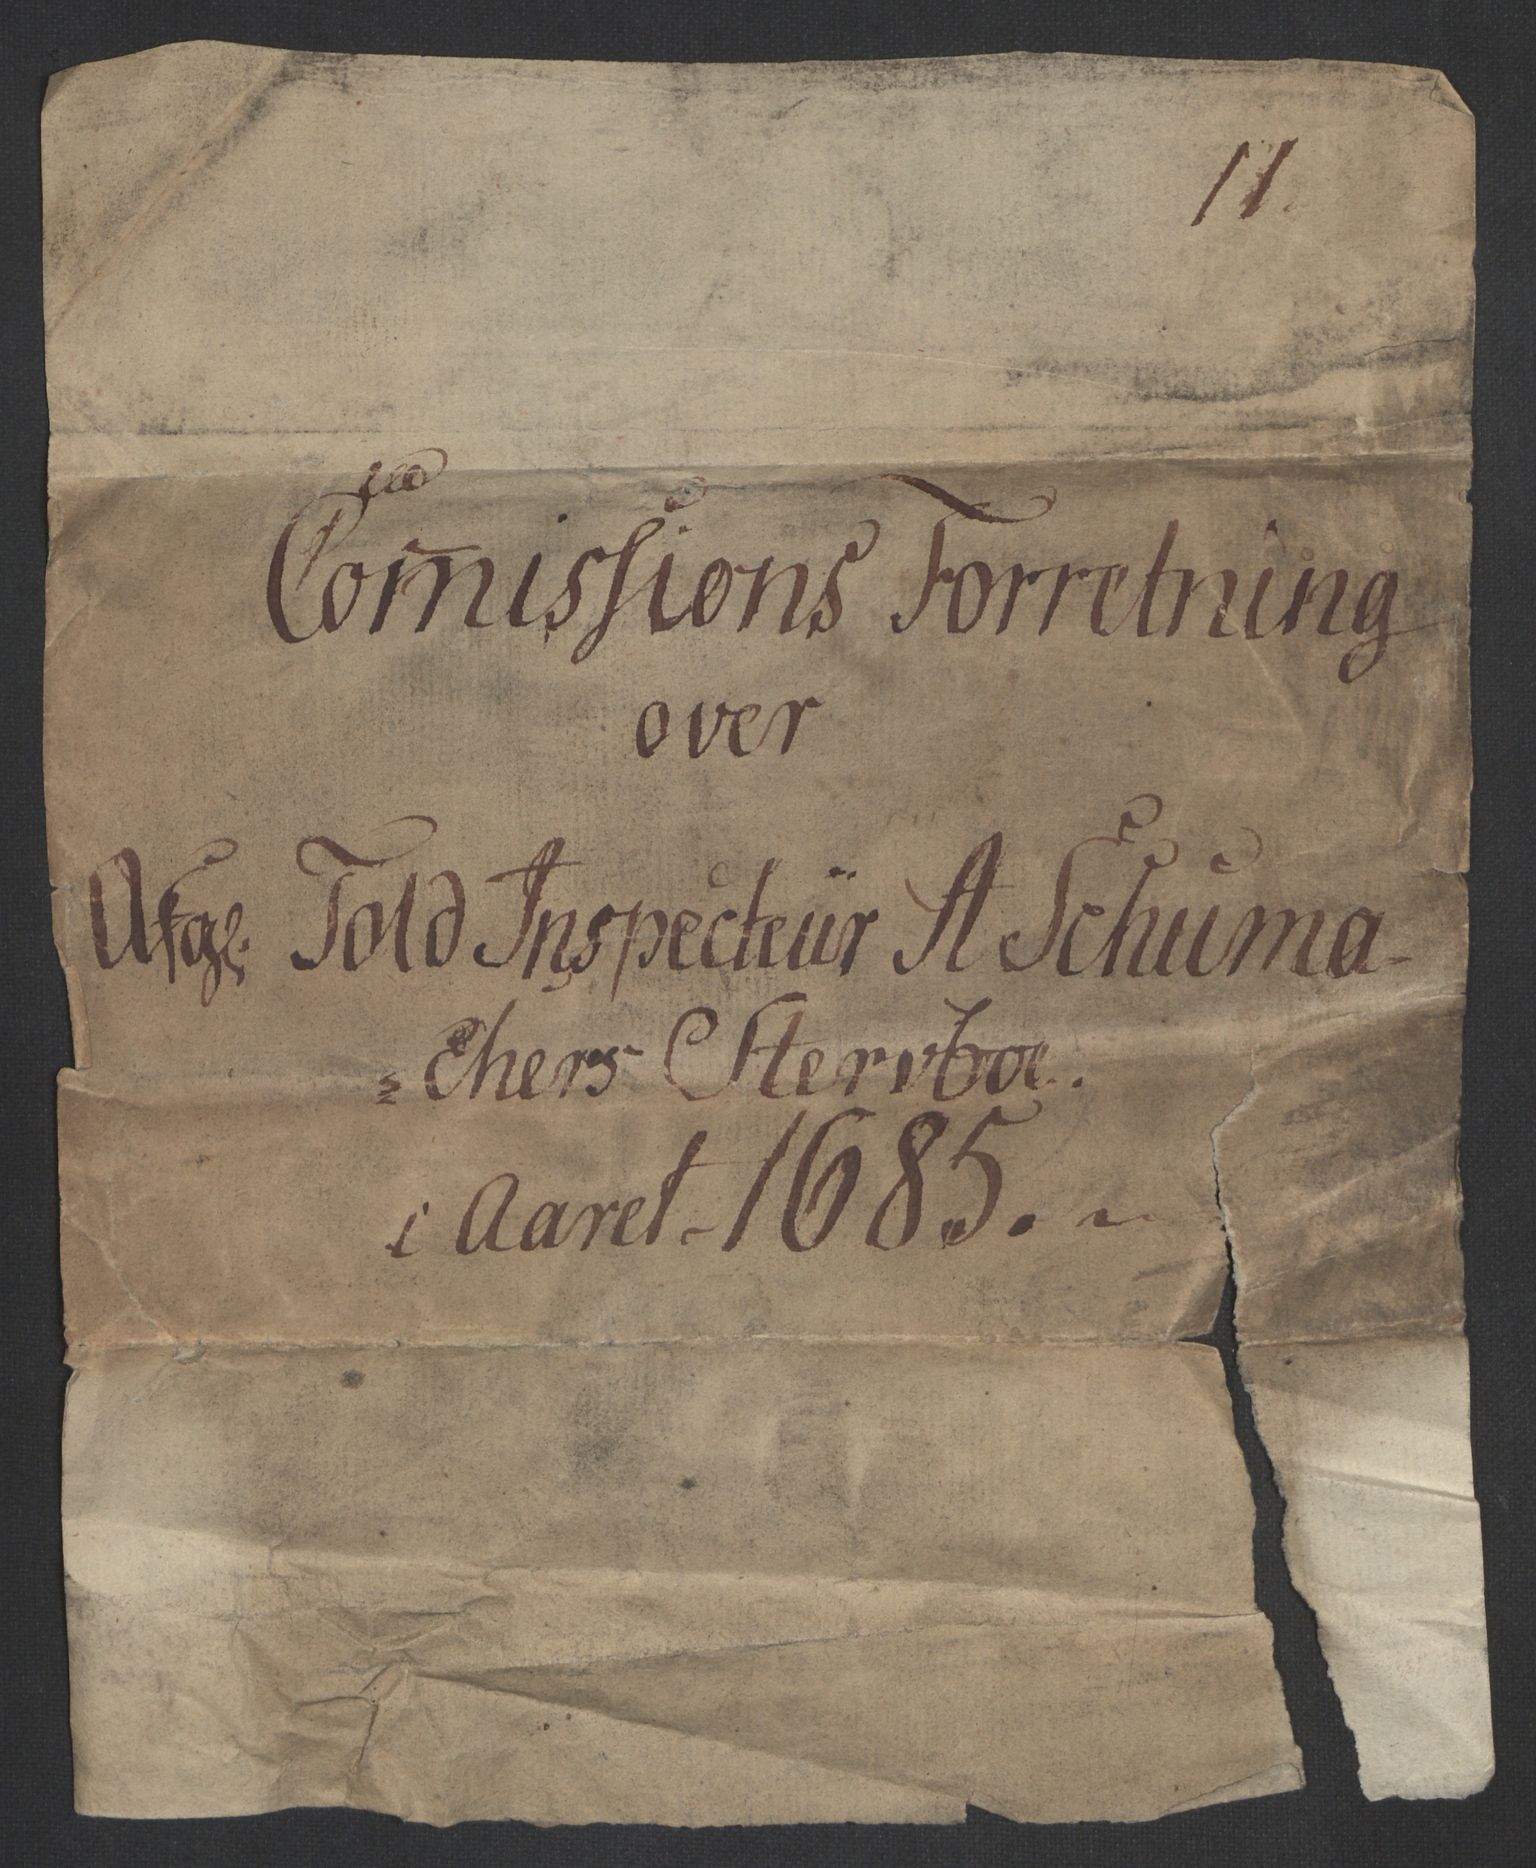 11.
Com̄issions Forretning
over
Afge: Told Inspecteür A Schuma-
=chers Sterboe.
i Aaret 1685.